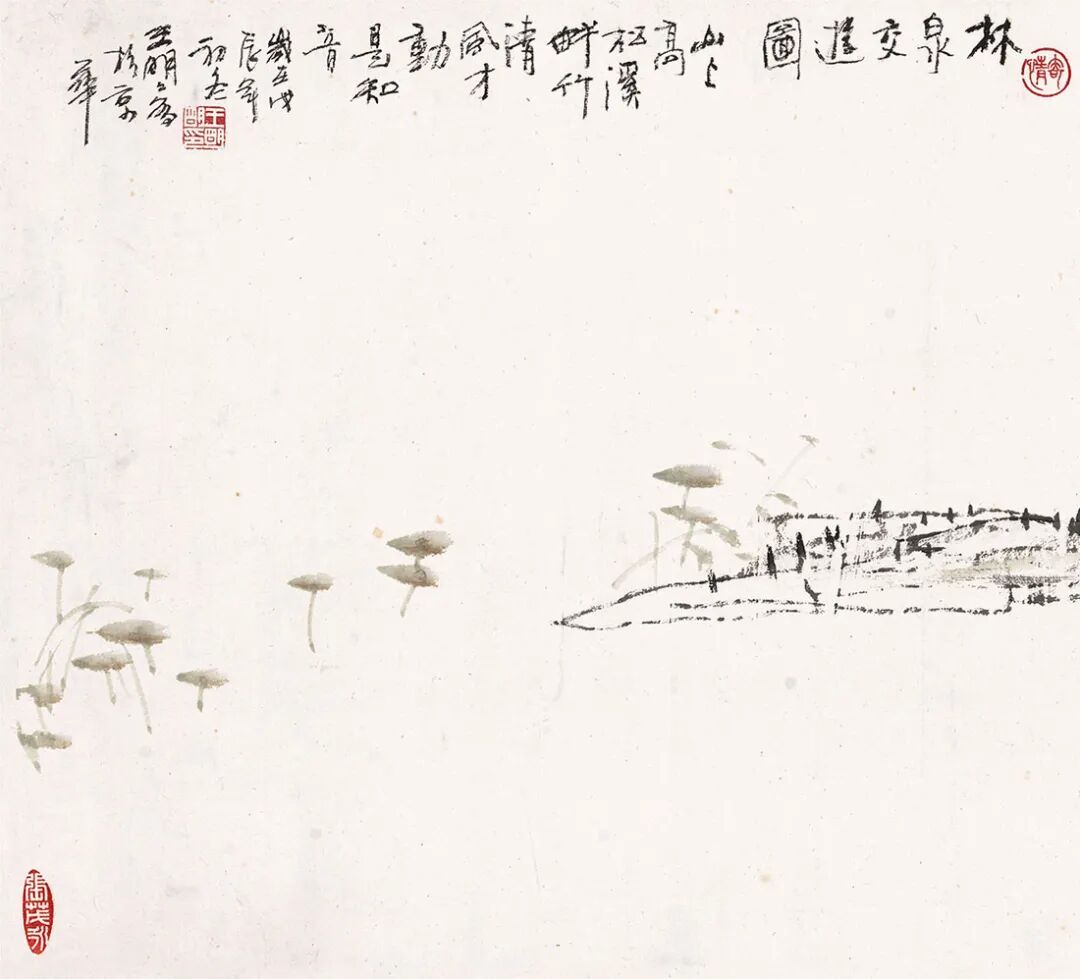 林
泉
交
圖
山上
高
松溪
畔竹
清
風才
動
是知
音
歲在戊
辰年
初冬
王明明寫
於京
華
寄情
王明明印